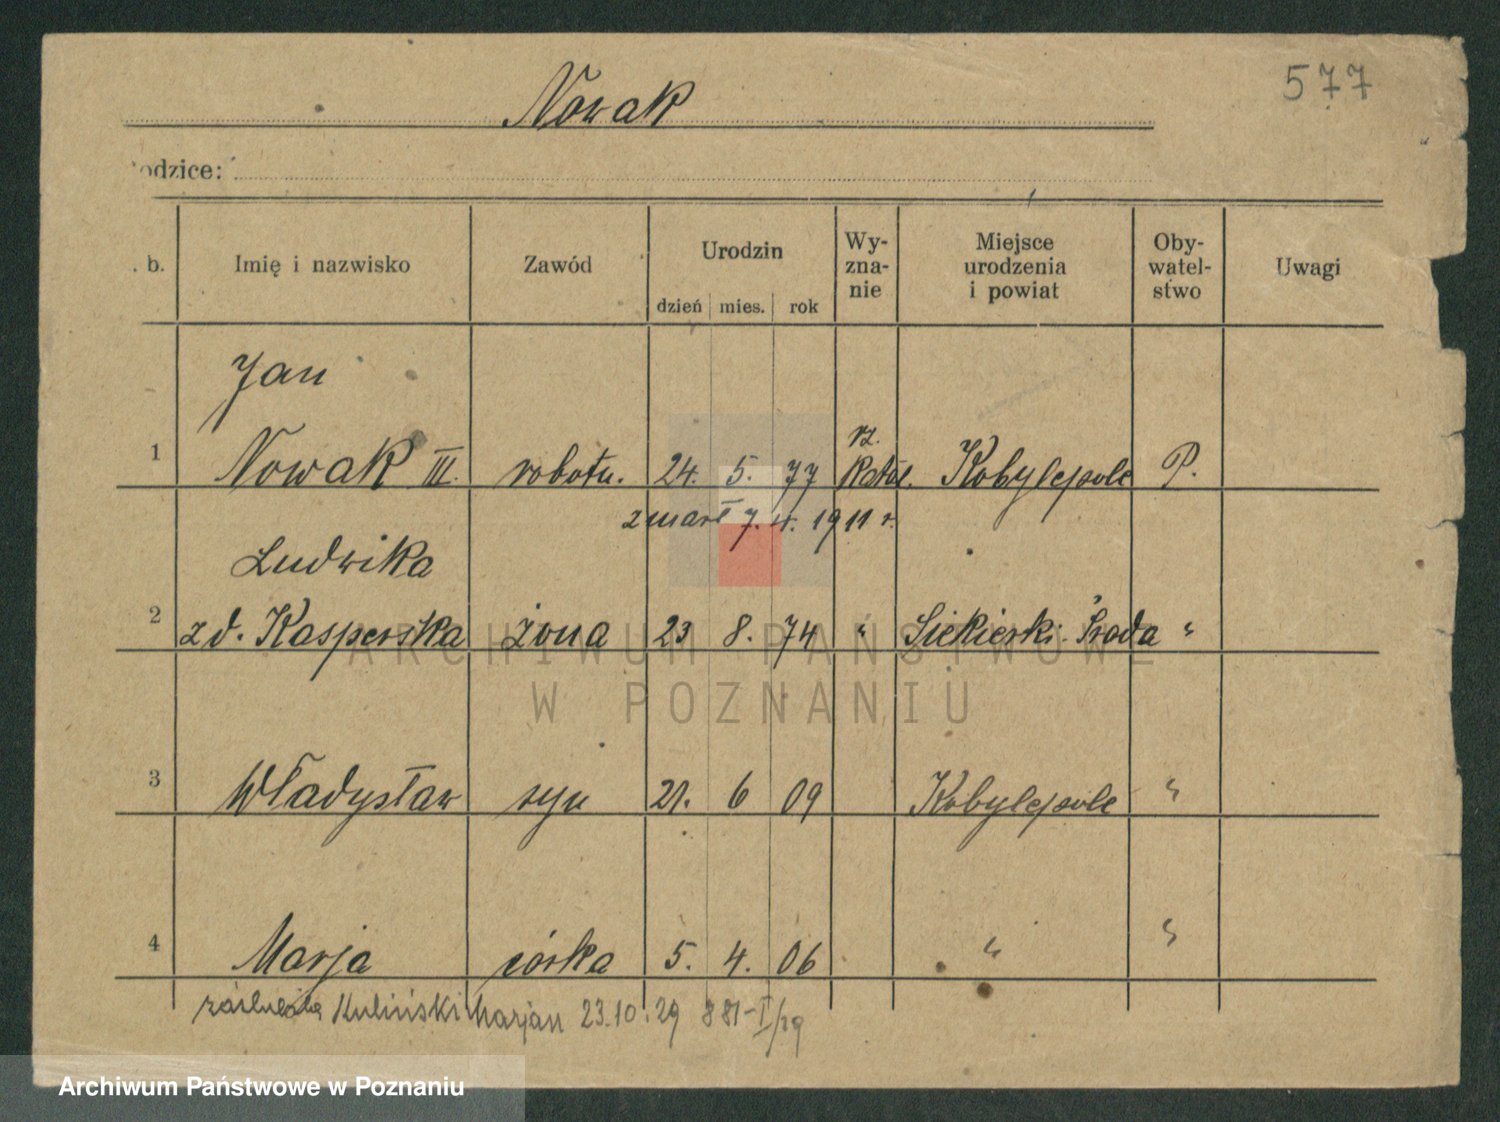 577
Nowak
odzice:
. b.
Imię i nazwisko
Zawód
Urodzin
dzień mies. rok
Wy-
zna-
nie
Miejsce
urodzenia
i powiat
Oby-
watel-
stwo
Uwagi
Jan
1 Nowak III. robotn. 24. 5. 77 rz. Katol. Kobylepole P.
zmarł 7. 4. 1911 r.
Ludwika
2 z d. Kasperska żona 23 8. 74 " Siekierki - Środa "
3 Władysław syn 21. 6 09 Kobylepole "
4 Marja córka 5. 4. 06 " "
zaślubiła Kuliński Marjan 23.10.29 881-I/29
ARCHIWUM PAŃSTWOWE
W POZNANIU
Archiwum Państwowe w Poznaniu